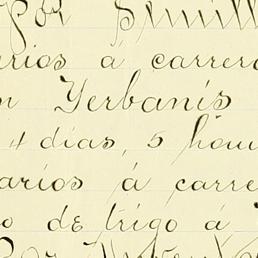 Por Semill
arios á carrera
n Yerbanis
4 dias, 5 hom
arios á carre
o de trigo á
Por